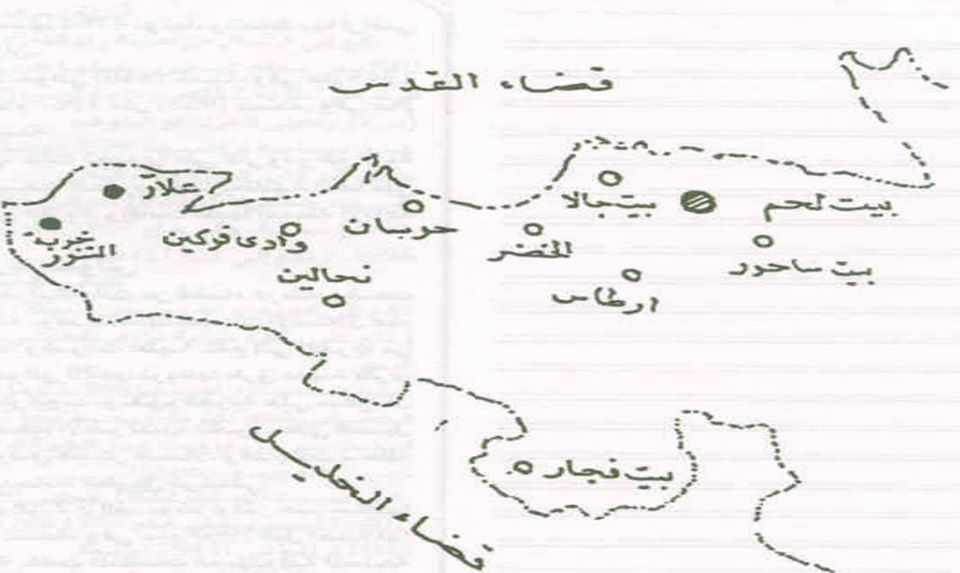 قضاء القدس
بيت لحم
بيت جالا
بيت ساحور
الخضر
ارطاس
حوسان
وادي فوكين
نحالين
علار
خربة
التنور
بيت فجار
قضاء الخليل